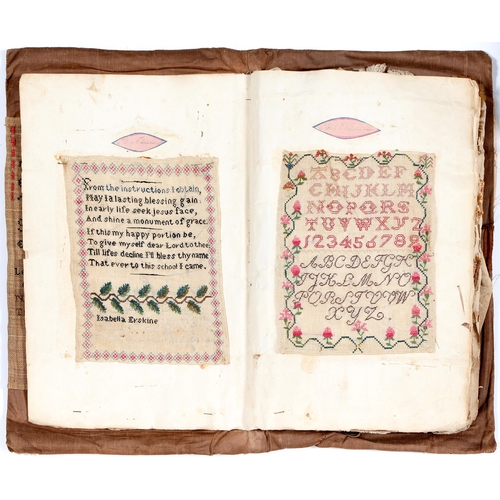 From the instructions I obtain,
May I a lasting blessing gain
In early life seek jesus face,
And shine a monument of grace.
If this my happy portion be,
To give myself dear Lord to thee
Till lifes decline I'll bless thy name
That ever to this school I came.
Isabella Erskine
ABCDEF
GHIJKLM
NOPQRS
TUVWXYZ
123456789
ABCDEFGH
IJKLMNO
PQRSTUVW
XYZ.